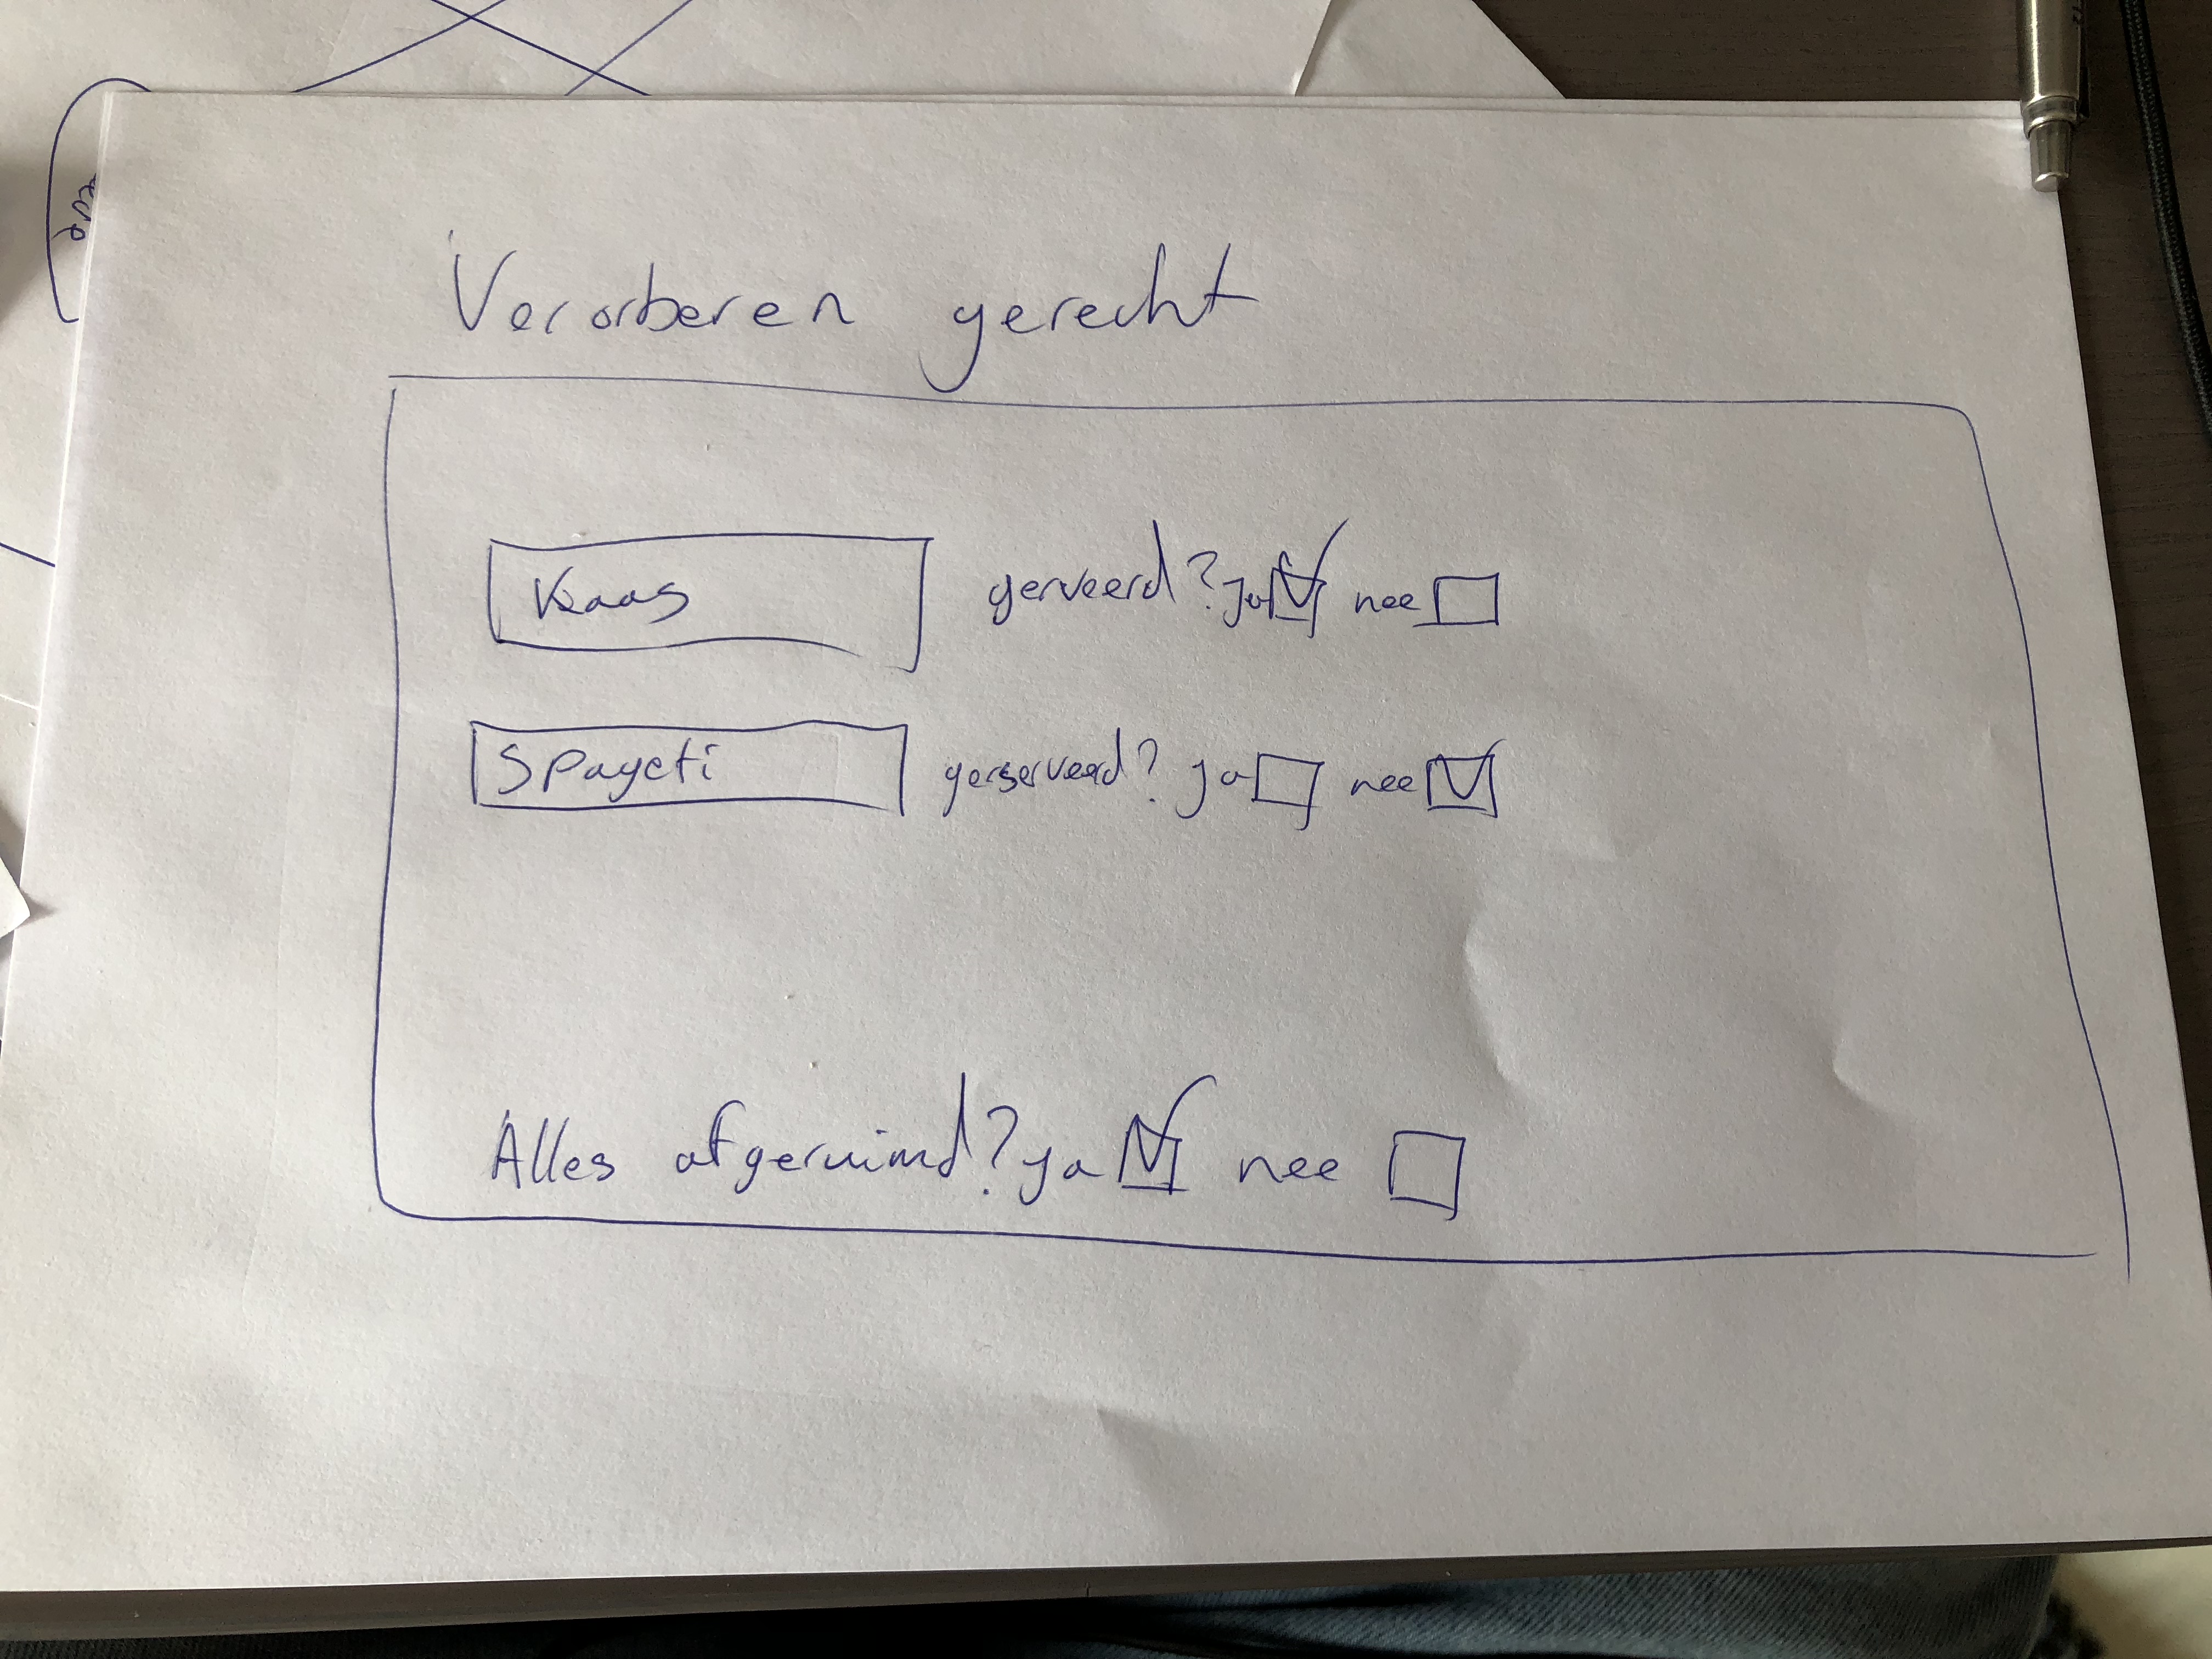 Verorberen gerecht
Kaas gerveerd? ja nee
SPagetti geserveerd? ja nee
Alles afgeruimd? ja nee